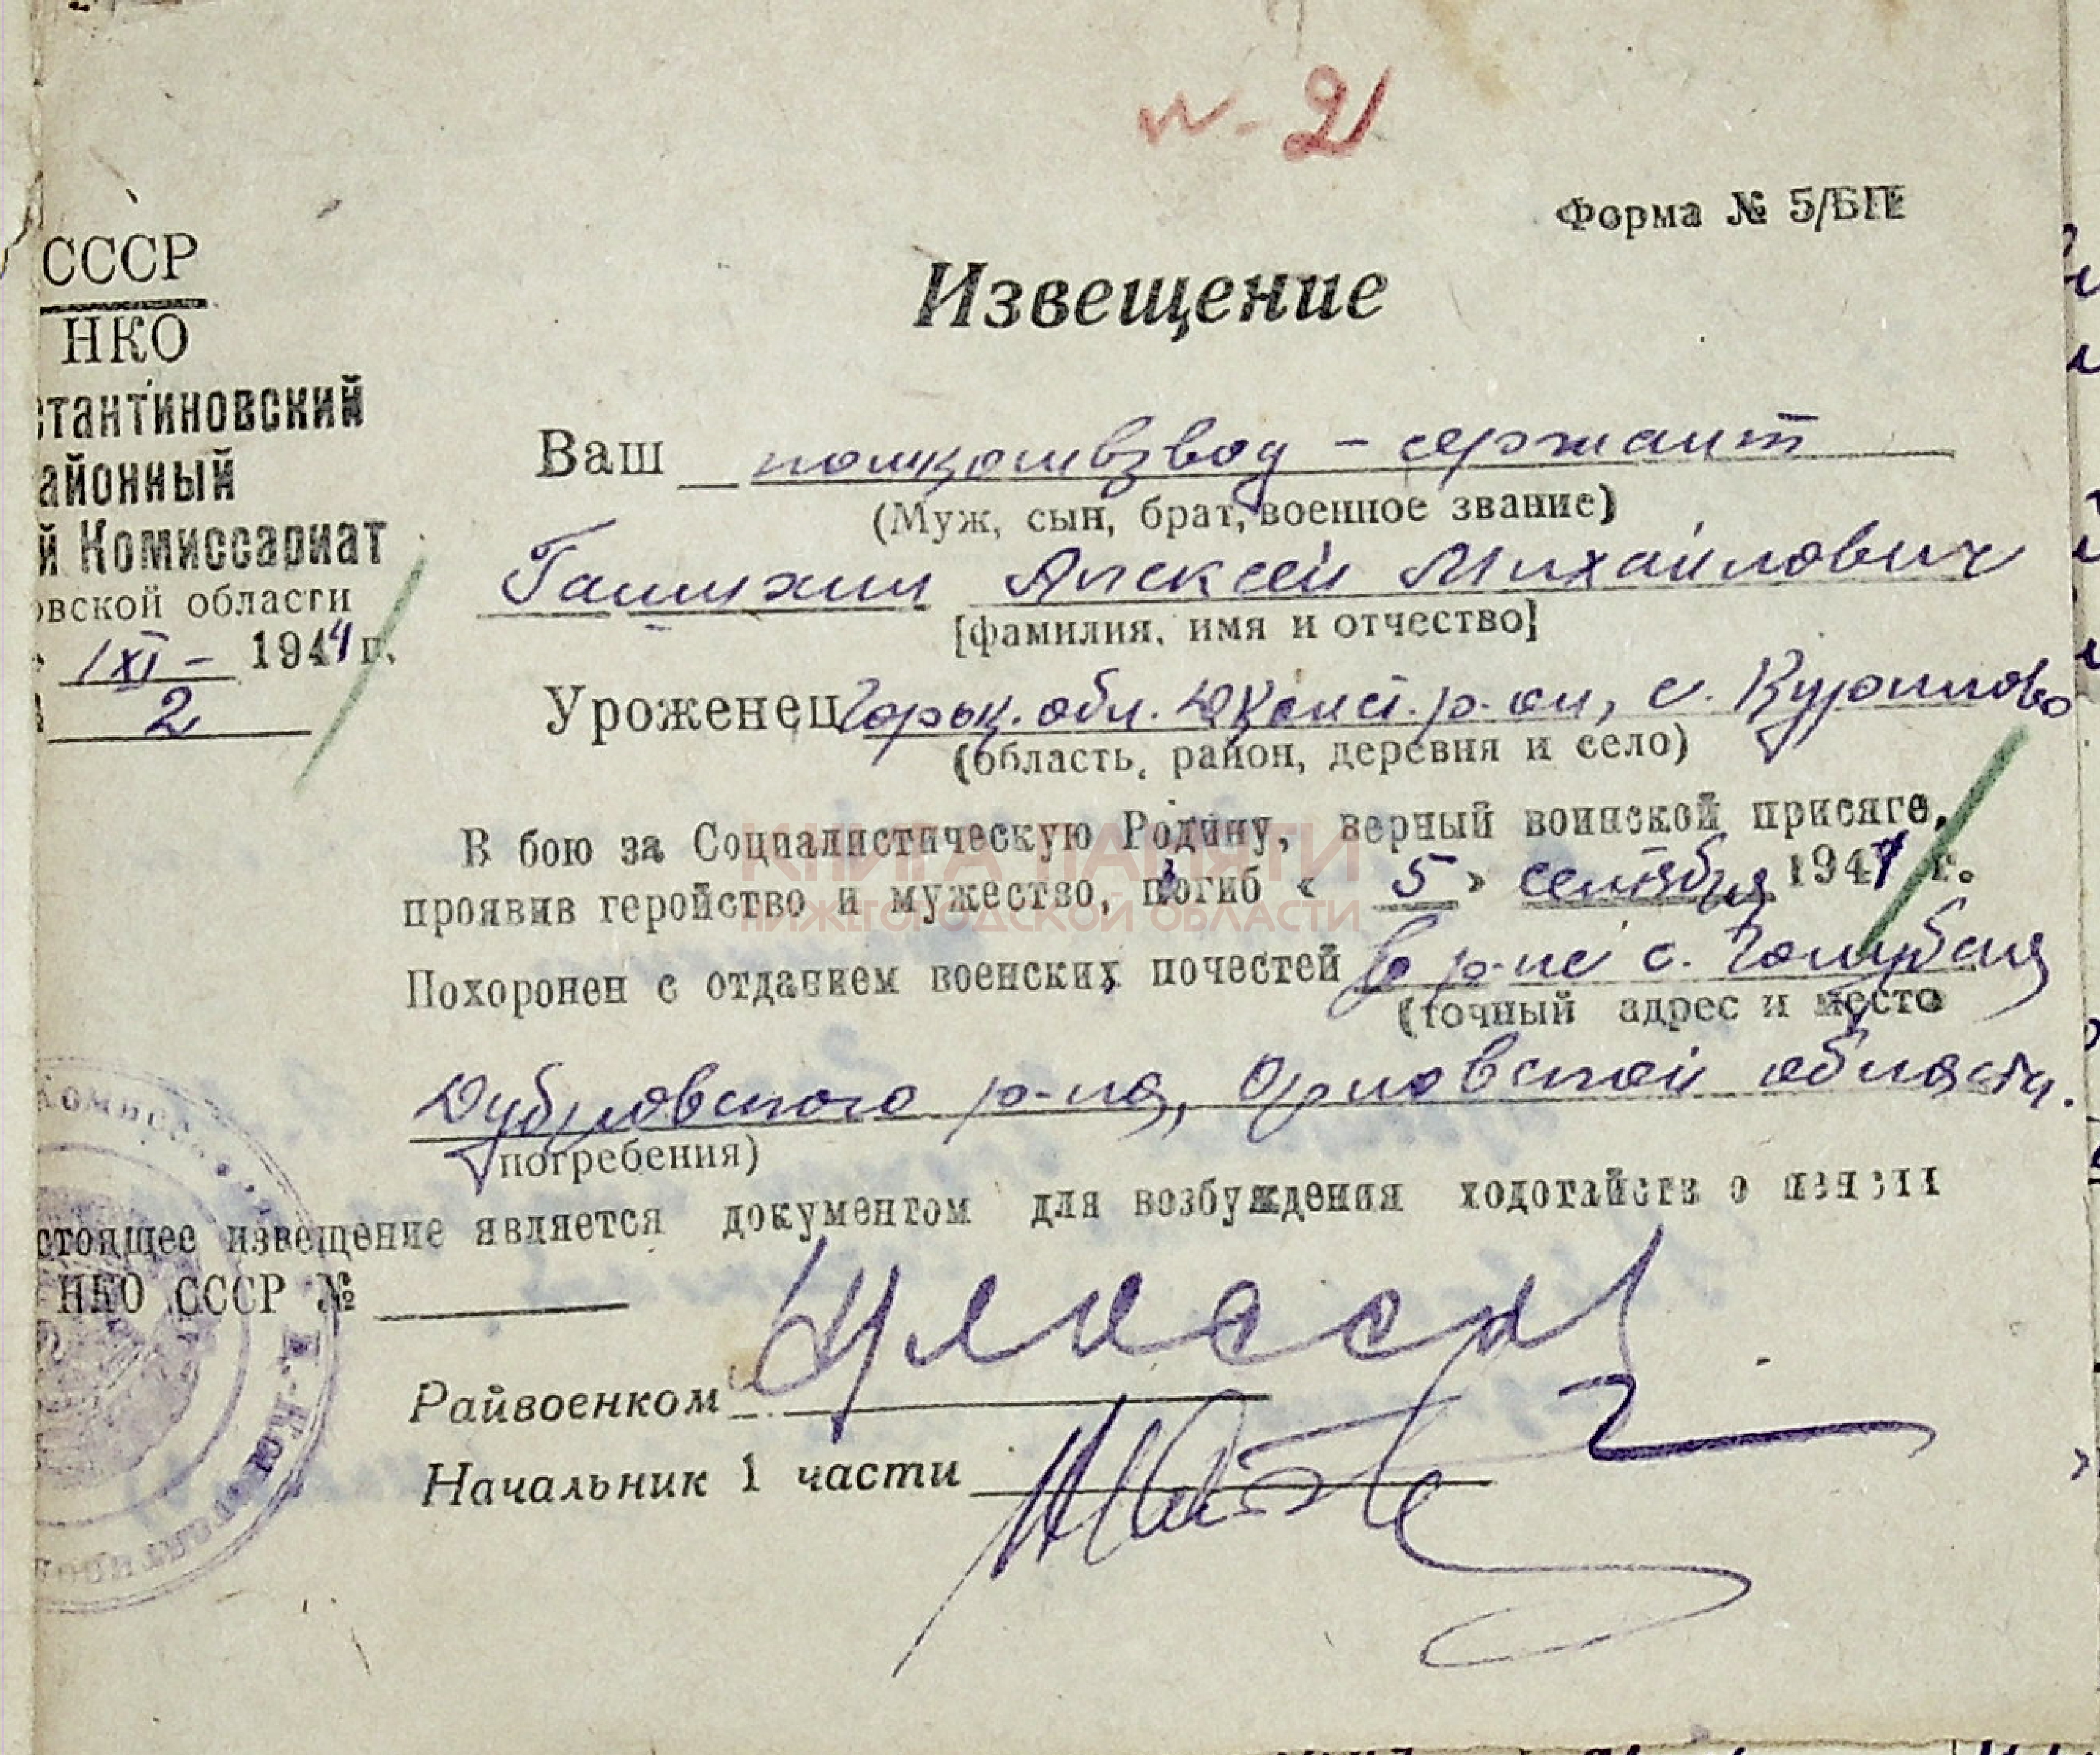 н-21
Форма № 5/БП
СССР
НКО
стантиновский
айонный
й Комиссариат
овской области
1/XI – 1944 г.
2
Извещение
Ваш помкомвзвод – сержант
(Муж, сын, брат, военное звание)
Алексей Михайлович
[фамилия, имя и отчество]
Уроженец Горьк. обл. Д Конст. р-он, с. Курилово
(область, район, деревня и село)
В бою за Социалистическую Родину, верный воинской присяге,
проявив геройство и мужество, погиб « 5 » сентября 1941 г.
Похоронен с отданием воєнских почестей в р-не с. Голубея
(точный адрес и место
Дубровского р-на, Орловской области.
погребения)
стоящее извещение является документом для возбуждения ходотайств о пенсии
НКО СССР №
Райвоенком
Начальник 1 части
КНИГА ПАМЯТИ
НИЖЕГОРОДСКОЙ ОБЛАСТИ